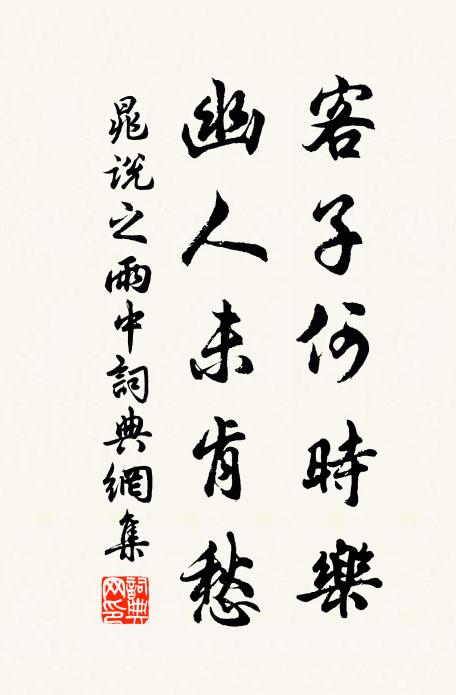 客子何時樂
幽人未肯愁
晁說之雨中詞典網集
詞典網印